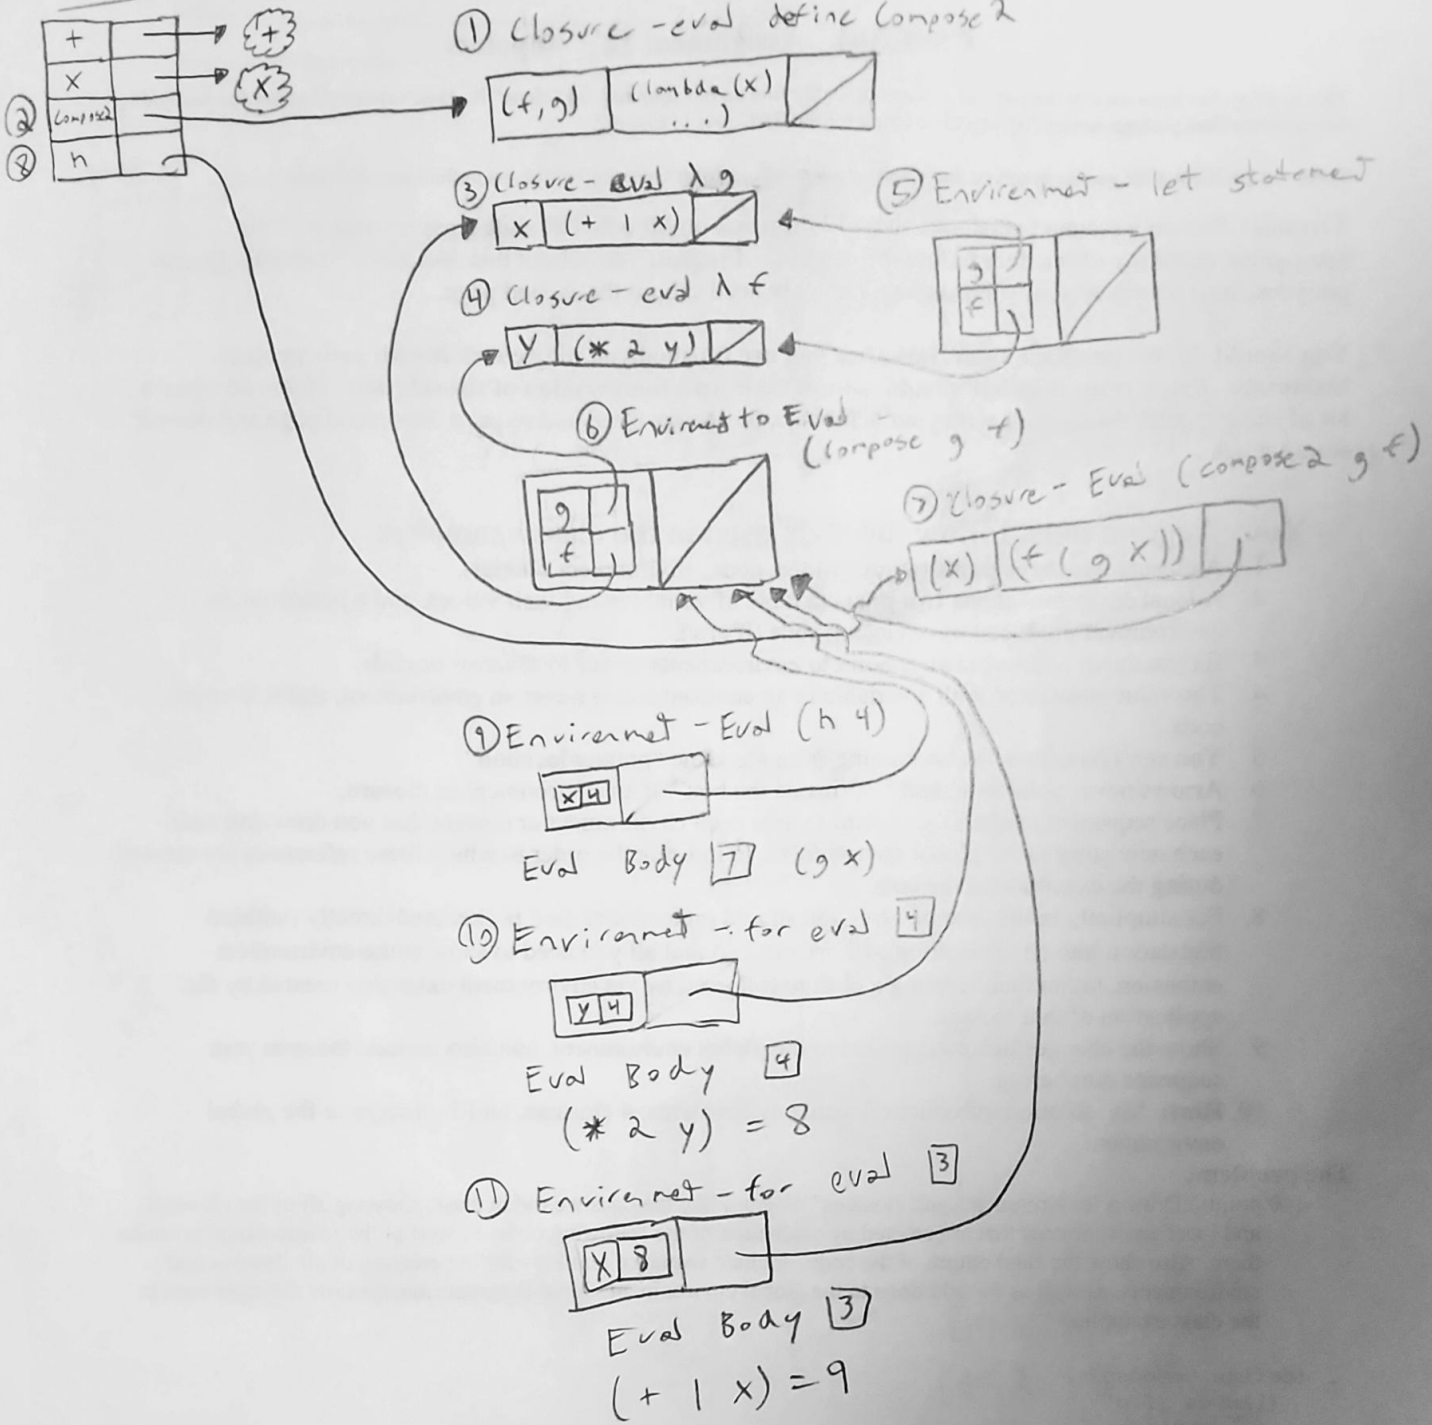 +
+
X
X
② Compose2
⑧ h
① Closure - eval define Compose2
(f,g)
(lambda(x)
...)
③ Closure - eval λ g
x (+ 1 x)
④ Closure - eval λ f
y (* 2 y)
⑤ Envirenment - let statement
g
f
⑥ to Eval
(compose g f)
g
f
⑦ Closure - Eval (compose2 g f)
(x) (f (g x))
⑨ Envirenmet - Eval (h 4)
x 4
Eval Body 7 (g x)
⑩ Envirenmet - for eval 4
y 4
Eval Body 4
(* 2 y) = 8
⑪ Envirenmet - for eval 3
X 8
Eval Body 3
(+ 1 x) = 9